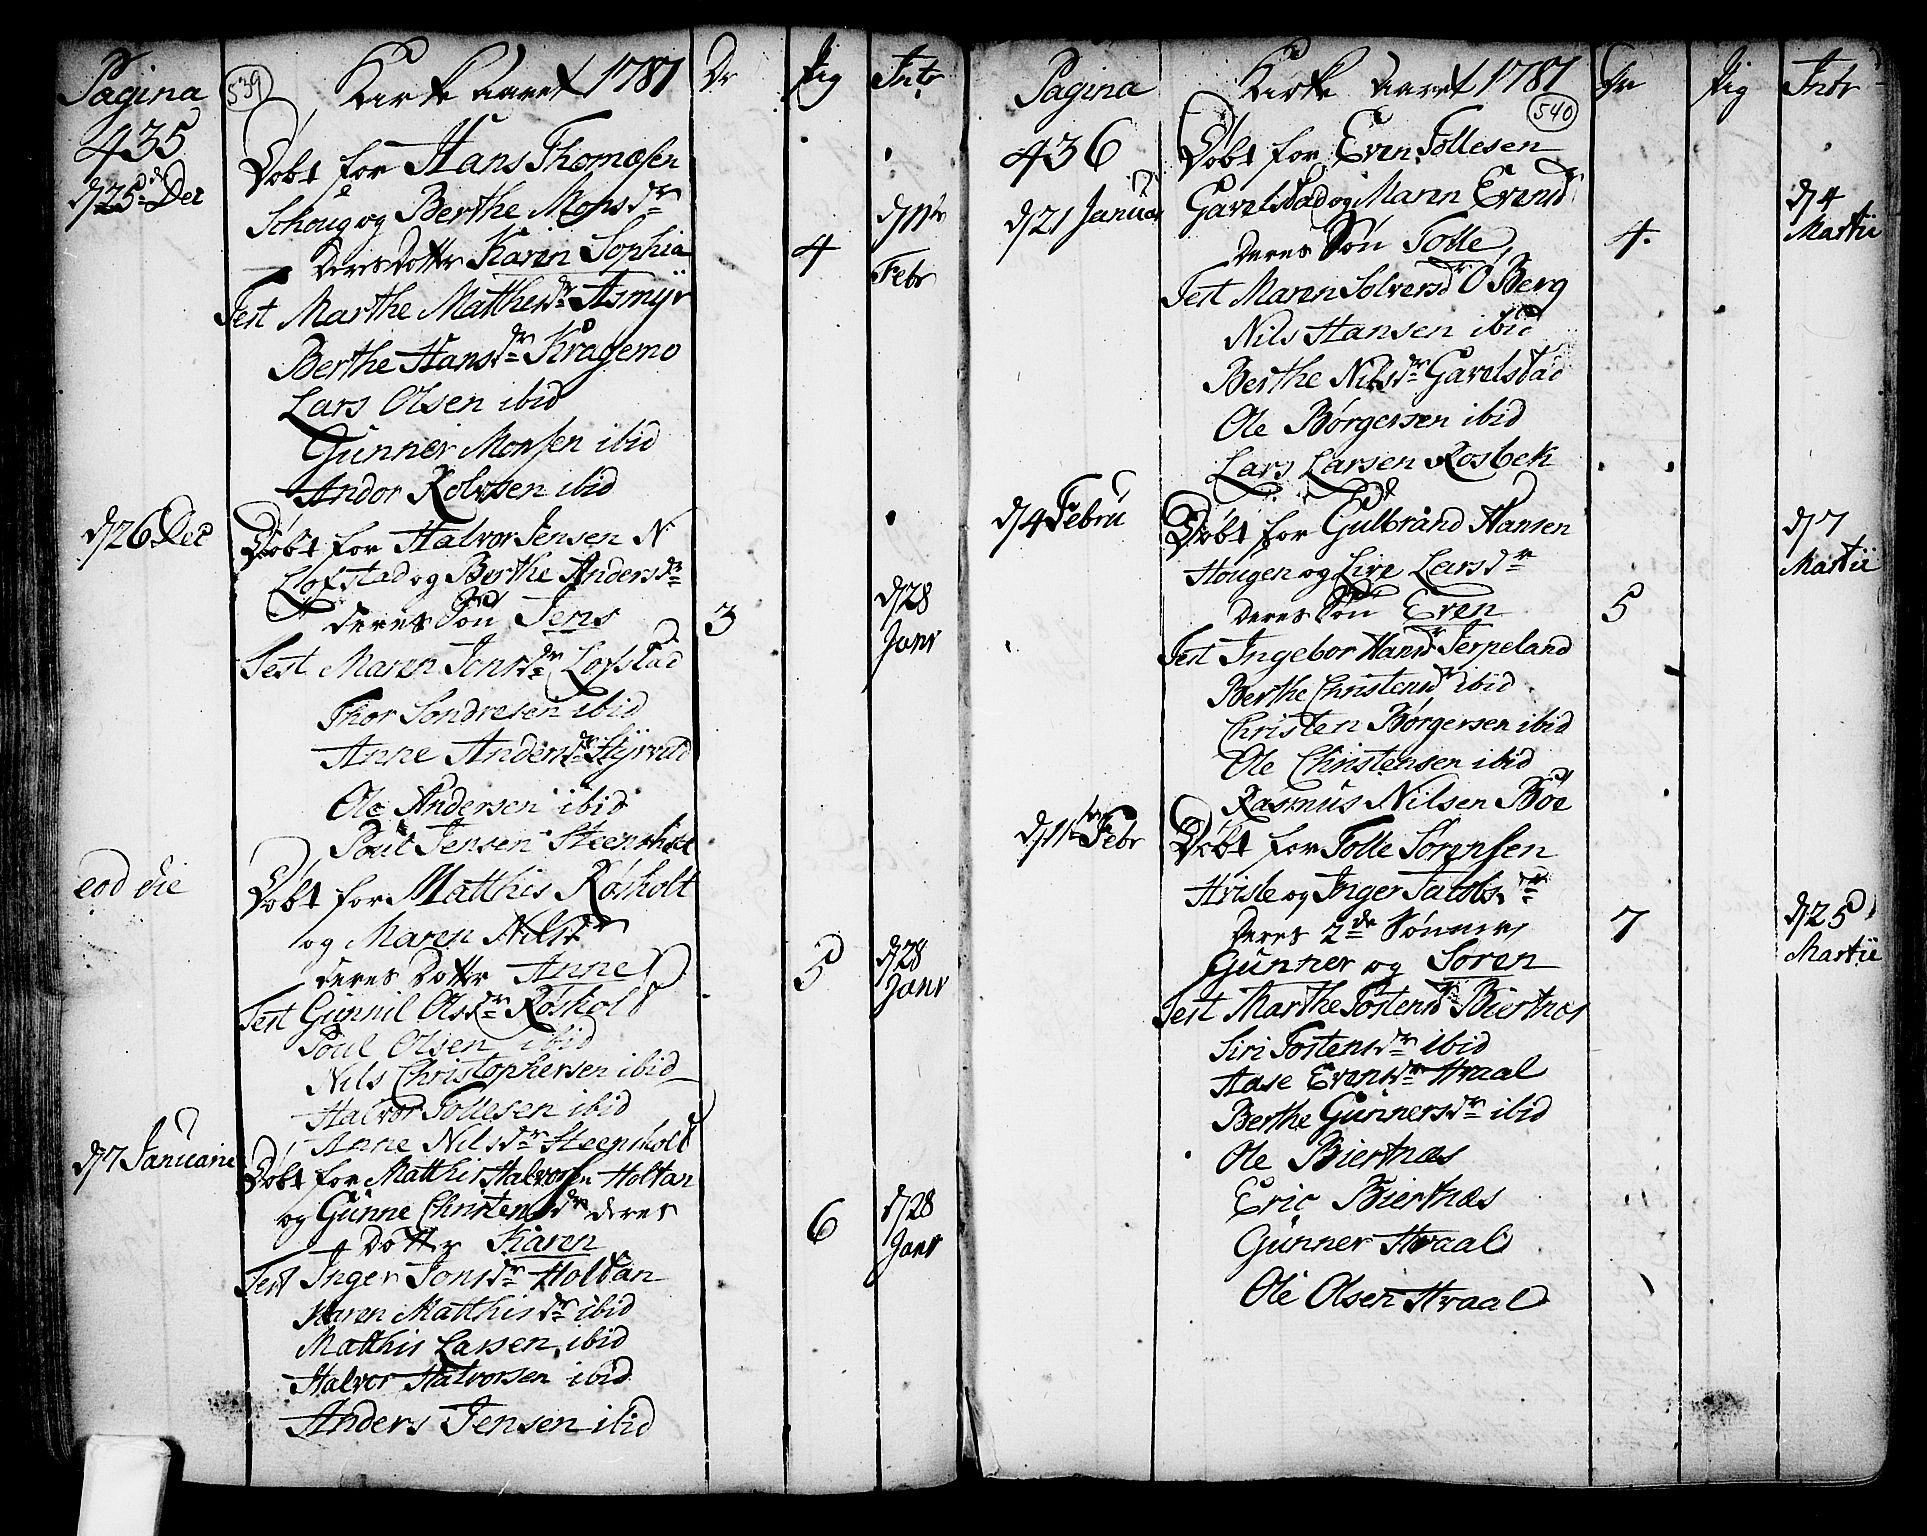 Pagina 539 Kirke Aaret 1781 Dr Pig Intr
435
d 25 Dec Døbt for Hans Thomesen
Schoug og Berthe Monsdr
Deres Dotter Karen Sophia 4 d 11te Febr
Test Marthe Matthesdr Asmyr
Berthe Hansdr Kragemo
Lars Olsen ibid
Gunner Monsen ibid
Andor Rolvsen ibid
d 26 Dec Døbt for Halvor Jensen N
Lofstad og Berthe Andersdr
deres Søn Jens 3 d 28 Janr
Test Maren Jonsdr Lofstad
Thor Sondresen ibid
Anne Andersdr
Ole Andersen ibid
Poul Jensen Steensholt
eod die Døbt for Matthis Røsholt
og Maren Nilsdr
deres Dotter Anne 5 d 28 Janr
Test Gunnil Olsdr Røsholt
Poul Olsen ibid
Nils Christophersen ibid
Halvor Tollesen ibid
Anne Nilsdr Steensholt
d 7 Januarii Døbt for Matthis Halvorsen Holtan
og Gunne Christensdr deres
Dotter Karen 6 d 28 Janr
Test Inger Jonsdr Holtan
Karen Matthisdr ibid
Matthis Larsen ibid
Halvor Halvorsen ibid
Anders Jensen ibid
Pagina Kirke Aaret 1781 540 Dr Pig Intr
436 Døbt for Even Tollesen
d 21 Januar Gavelstad og Maren Evensd
deres Søn Tolle 4. d 4 Martii
Test Maren Solversdr Ø Berg
Nils Hansen ibid
Berthe Nilsdr Gavelstad
Ole Børgersen ibid
Lars Larsen Rosbek
d 4 Febru Døbt for Gulbrand Hansen
Hougen og Live Larsdr d 7 Martii
deres Søn Even 5
Test Ingebor Hansdr Jerpeland
Berthe Christensdr ibid
Christen Børgersen ibid
Ole Christensen ibid
Rasmus Nilsen Bøe
d 11te Febr Døbt for Tolle Sørensen
Hvisle og Inger Jacobsdr
Deres 2de Sønner 7 d 25 Martii
Gunner og Soren
Test Marthe Tostensdr Biertnæs
Siri Tostensdr ibid
Aase Evensdr Hvaal
Berthe Gunnersdr ibid
Ole Biertnæs
Eric Biertnæs
Gunner Hvaal
Ole Olsen Hvaal